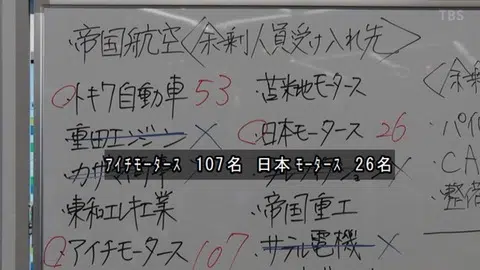 TBS
・帝国航空<余剰人員受け入れ先>
トキワ自動車 53
重田エンジン ×
東和エレキ工業
アイチモータース 107
苫米地モータース
日本モータース 26
×
帝国重工
サラル電機 ×
<余
・パイ
・CA
・整備
ｱｲﾁﾓｰﾀｰｽ 107名 日本ﾓｰﾀｰｽ 26名